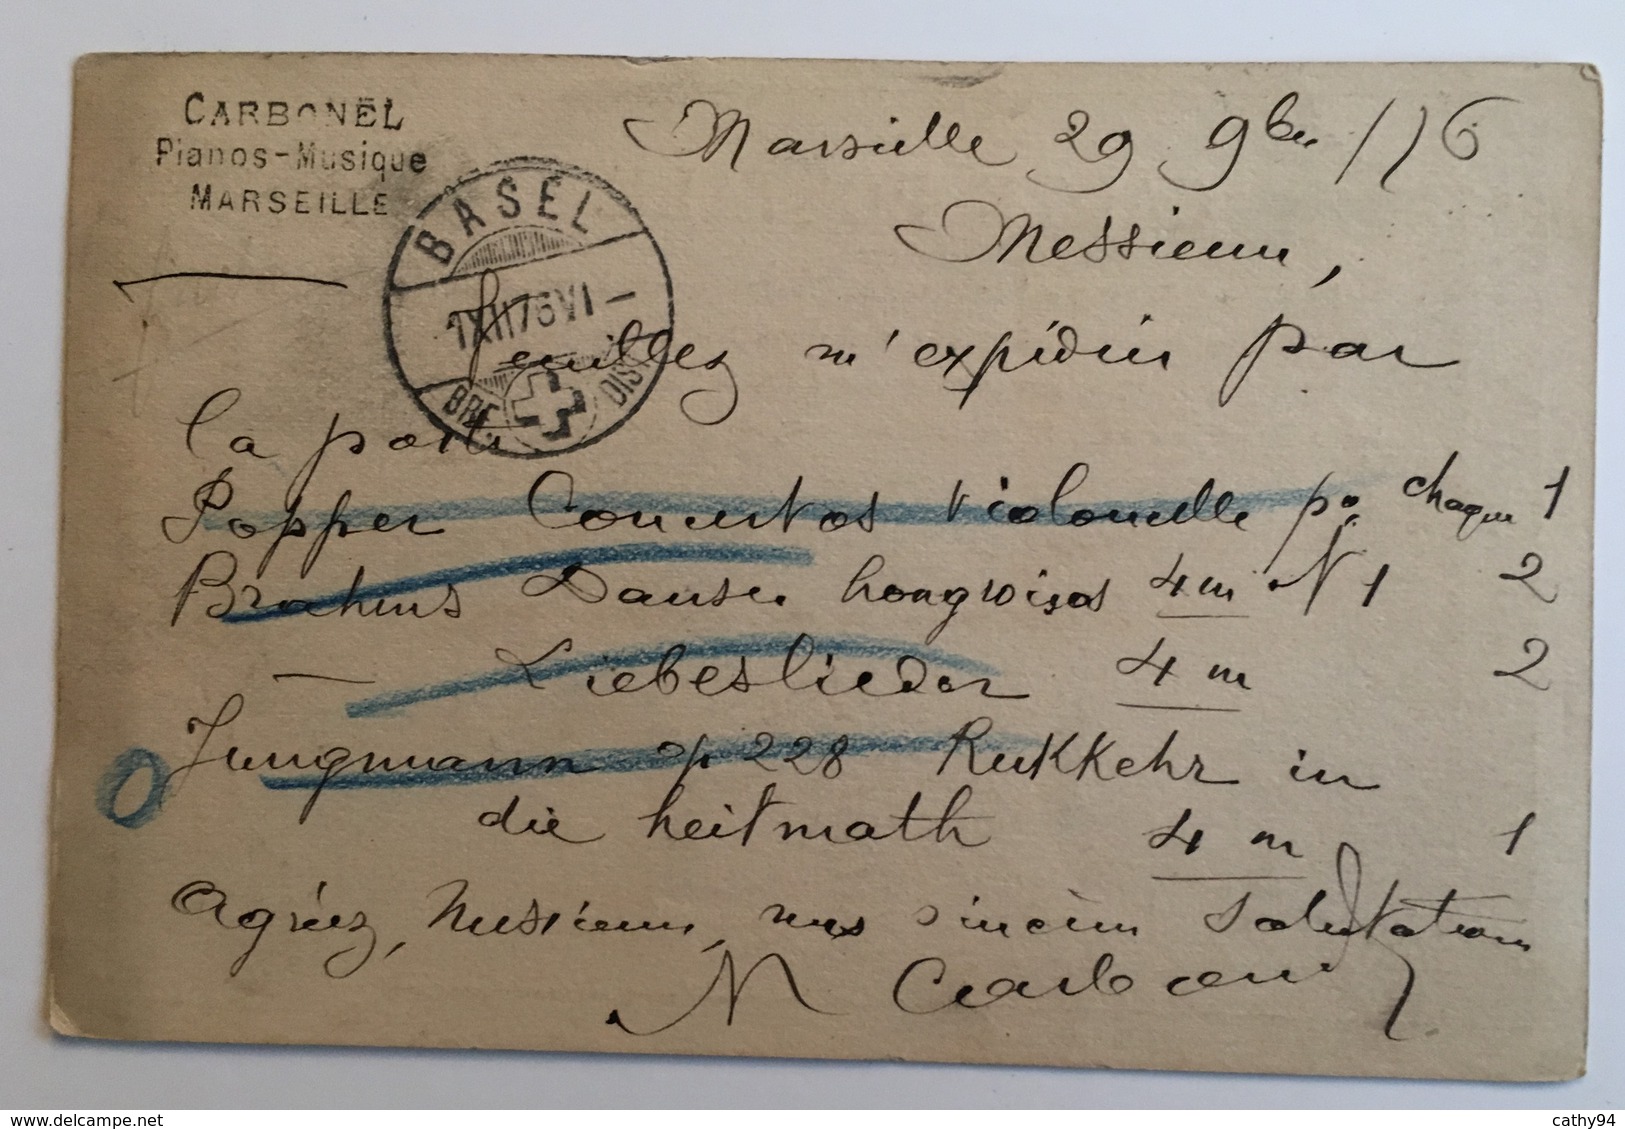 CARBONEL
Pianos-Musique
MARSEILLE
Marseille 29 9bre /76
BASEL
1XII76VI-
BRF. DIST.
Messieurs,
Veuillez m'expédier par
la poste
Popper Concertos Violoncelle po chaque 1
Brahms Danses hongroises 4 m N 1 2
— Liebeslieder 4 m 2
Jungmann op 228 Rukkehr in
die heitmath 4 m 1
Agréez, Messieurs, mes sincères salutations
N Carbonel
cathy94